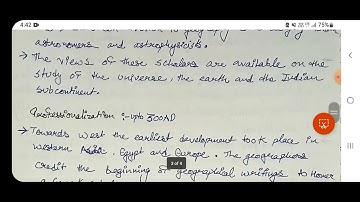 4:42
75%
astronomers and astrophysicists.
→ The views of these scholars are available on the
study of the universe, the earth and the Indian
subcontinent.
Professionalization :- upto 300AD
→ Towards west the earliest development took place in
western Asia, Egypt and Europe. The geographers
credit the beginning of geographical writings to Homer
3 of 4